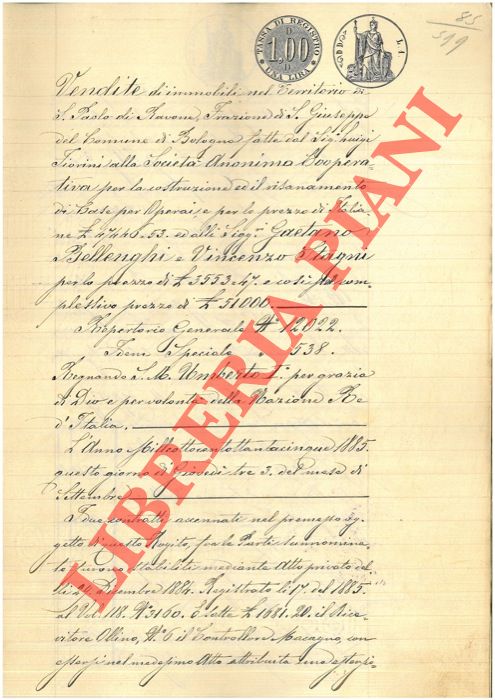 85
519
TASSA DI REGISTRO
D 1,00 D
UNA LIRA
L. 1
Vendite di immobili nel Territorio di
S. Paolo di Ravone, Frazione di S. Giuseppe
del Comune di Bologna fatte dal Sig. Luigi
Fiorini alla Società Anonima Coopera-
tiva per la costruzione ed il risanamento
di Case per Operai e per lo prezzo di Italia-
ne £ 47446.53. ed alli Sigri Gaetano
Bellenghi e Vincenzo Stagni
per lo prezzo di £ 3553.47. e così pel com-
plessivo prezzo di £ 51000.
Repertorio Generale N° 12022.
Idem Speciale " 538.
Regnando S. M. Umberto I° per grazia
di Dio e per volontà della Nazione Re
d'Italia.
L'Anno Milleottocentottantacinque 1885.
questo giorno di Giovedì tre 3. del mese di
Settembre
I due contratti accennati nel premesso Og-
getto di questo Rogito, fra le Parti nominan-
stabiliti mediante Atto privato del
li 24 Dicembre 1884. Registrato li 17. del 1885.
al Vol. 118. N° 3160. è fatte £ 1681.20. il Rice-
vitore Ollino, il Controllore Macagno, con
essersi nel medesimo Atto attribuita
LIBRERIA PIANI